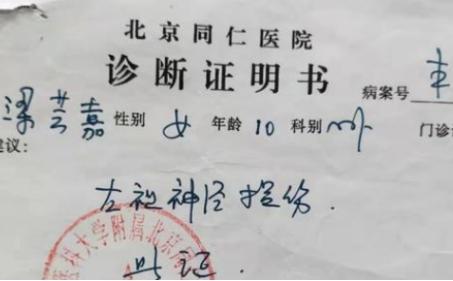 北京同仁医院
诊断证明书
病案号
梁芸嘉 性别 女 年龄 10 科别
门诊
建议:
左视神经损伤.
医科大学附属北京同
此证.